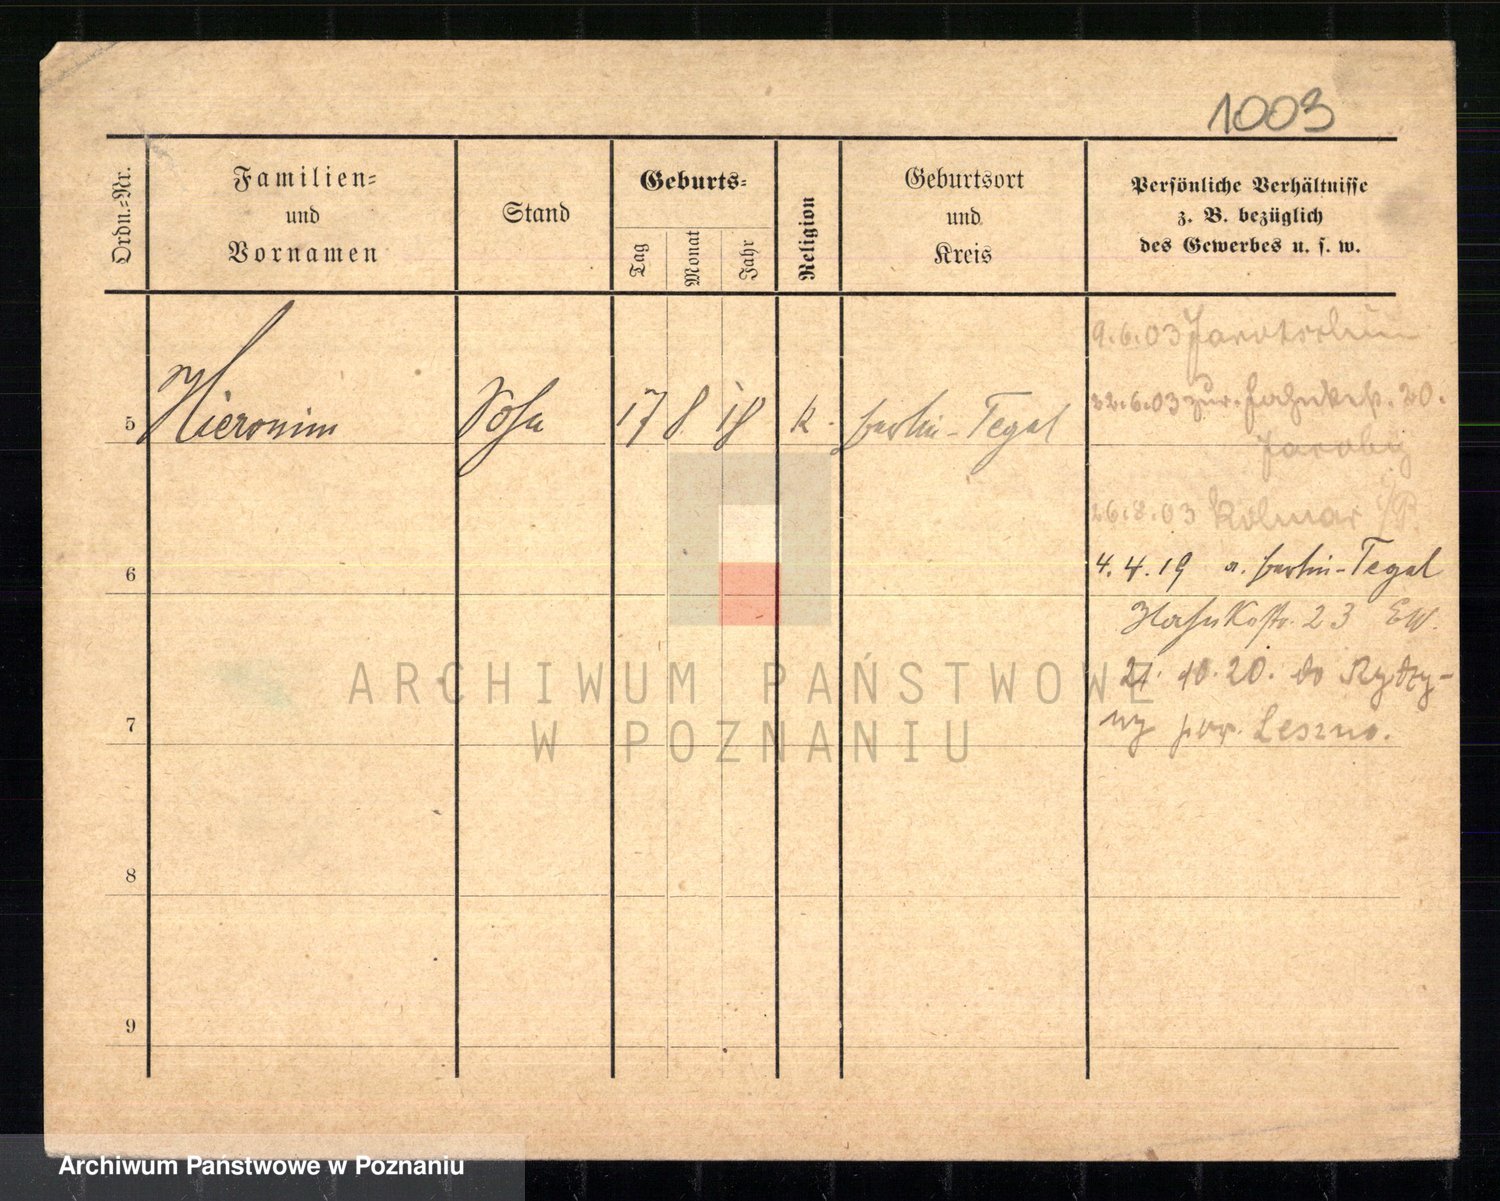 1003
Ordn.-Nr.
Familien-
und
Vornamen
Stand
Geburts-
Tag
Monat
Jahr
Religion
Geburtsort
und
Kreis
Persönliche Verhältnisse
z. B. bezüglich
des Gewerbes u. s. w.
9.6.03
5 Hieronim Sohn 17 8 18 k. Berlin-Tegal
22.6.03 zur. 20.
26.8.03 Kolmar i/P.
6
4.4.19 a. Berlin-Tegal
23 EW.
21.10.20. do Rydzy-
ny pow. Leszno.
7
8
9
ARCHIWUM PAŃSTWOWE
W POZNANIU
Archiwum Państwowe w Poznaniu